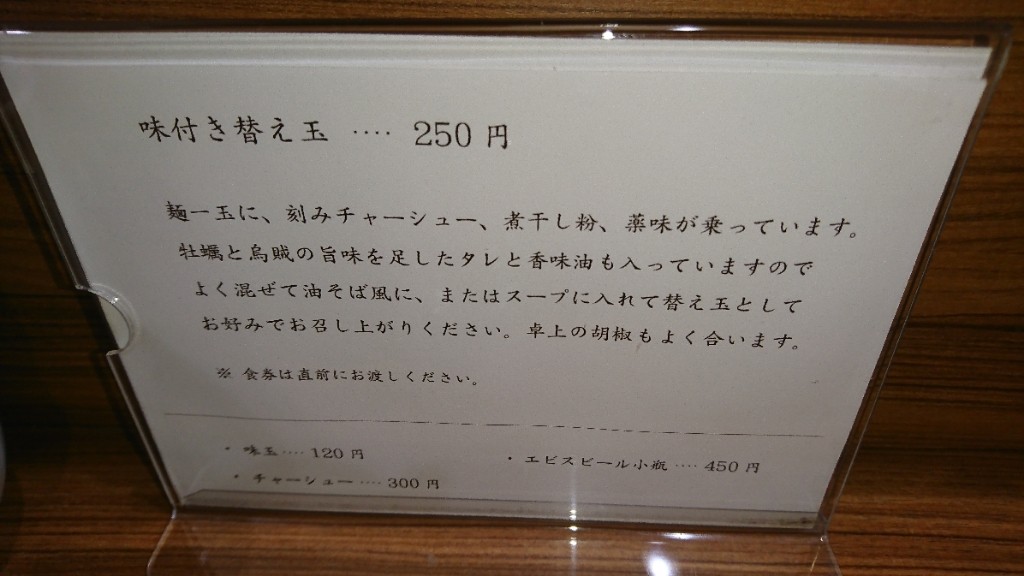 味付き替え玉 ‥‥ 250 円
麺一玉に、刻みチャーシュー、煮干し粉、薬味が乗っています。
牡蠣と烏賊の旨味を足したタレと香味油も入っていますので
よく混ぜて油そば風に、またはスープに入れて替え玉として
お好みでお召し上がりください。卓上の胡椒もよく合います。
※ 食券は直前にお渡しください。
・ 味玉 ‥‥ 120 円
・ エビスビール小瓶 ‥‥ 450 円
・ チャーシュー ‥‥ 300 円